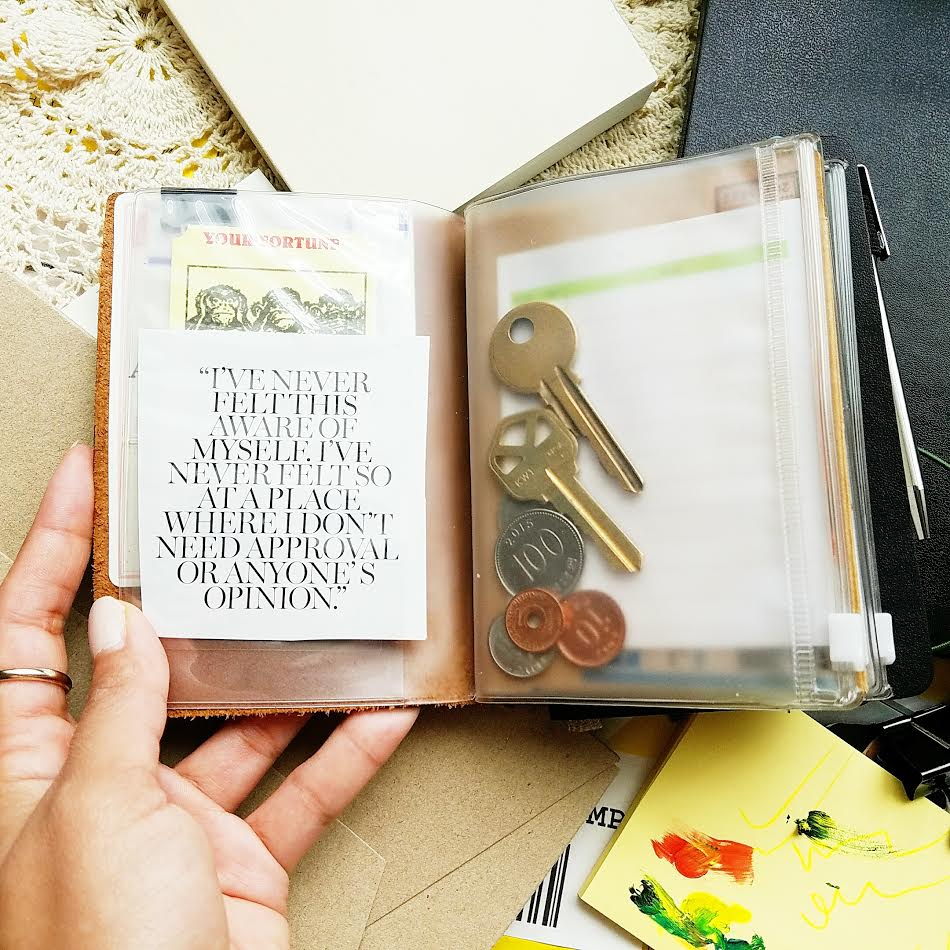 YOUR FORTUNE
“I’VE NEVER
FELT THIS
AWARE OF
MYSELF. I’VE
NEVER FELT SO
AT A PLACE
WHERE I DON’T
NEED APPROVAL
OR ANYONE’S
OPINION.”
2015
100
5
10
MP